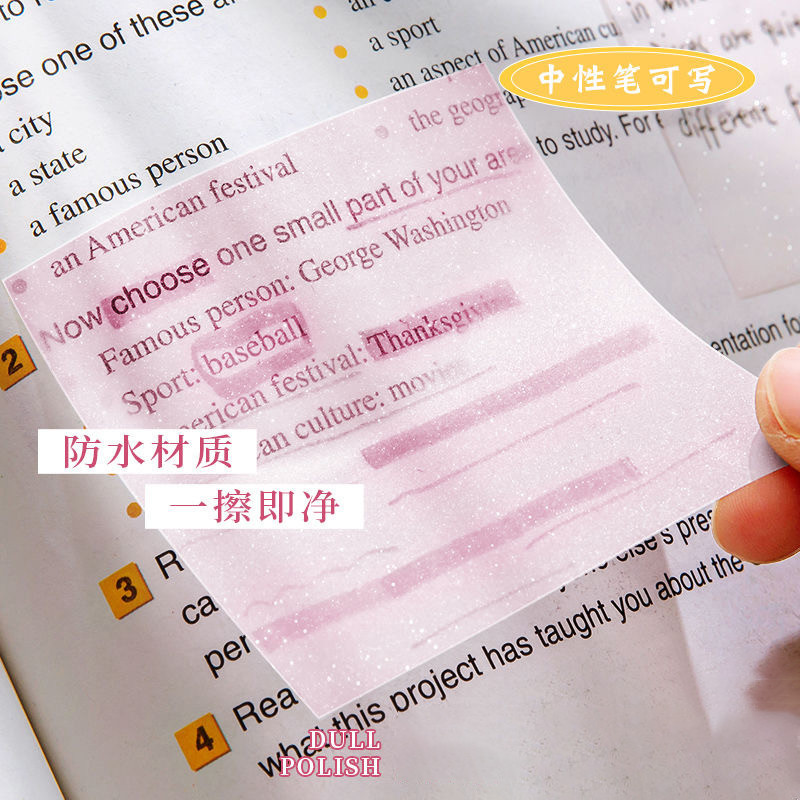 ose one of these
city
a state
a famous person
a sport
an aspect of American cu
中性笔可写
the geograp
to study. For
different
an American festival
Now choose one small part of your are
Famous person: George Washington
Sport: baseball
American festival: Thanksgiving
can culture: movie
防水材质
一擦即净
2
entation fo
3
R
ca
else's pres
per
4
Rea
what this project has taught you about the
DULL
POLISH